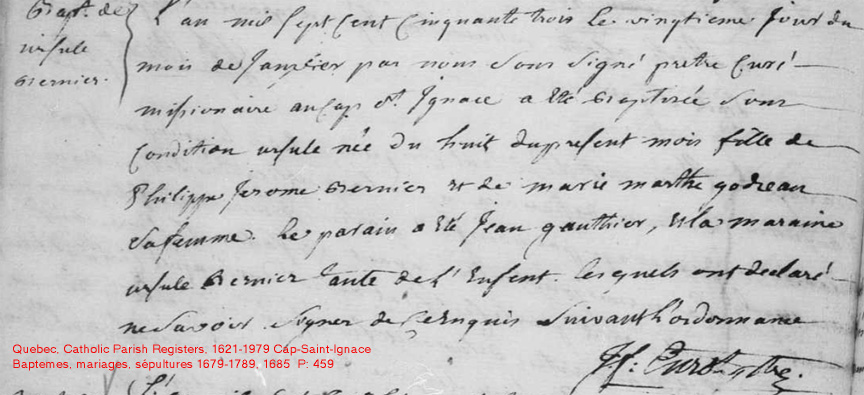 Bapt. de
ursule
Bernier.
L'an mil sept cent cinquante trois le vingtieme jour du
mois de Janvier par nous sous signé pretre Curé
missionaire au Cap St. Ignace a eté Baptisée sous
Condition ursule née du huit du present mois fille de
Philippe Jerome Bernier et de marie marthe godreau
sa femme. Le parain a eté Jean gauthier, et la maraine
ursule Bernier tante de L'Enfent. lesquels ont declaré
ne savoir signer de ce enquis suivant L'ordonnance
Quebec, Catholic Parish Registers, 1621-1979 Cap-Saint-Ignace
Baptemes, mariages, sépultures 1679-1789, 1685 P: 459